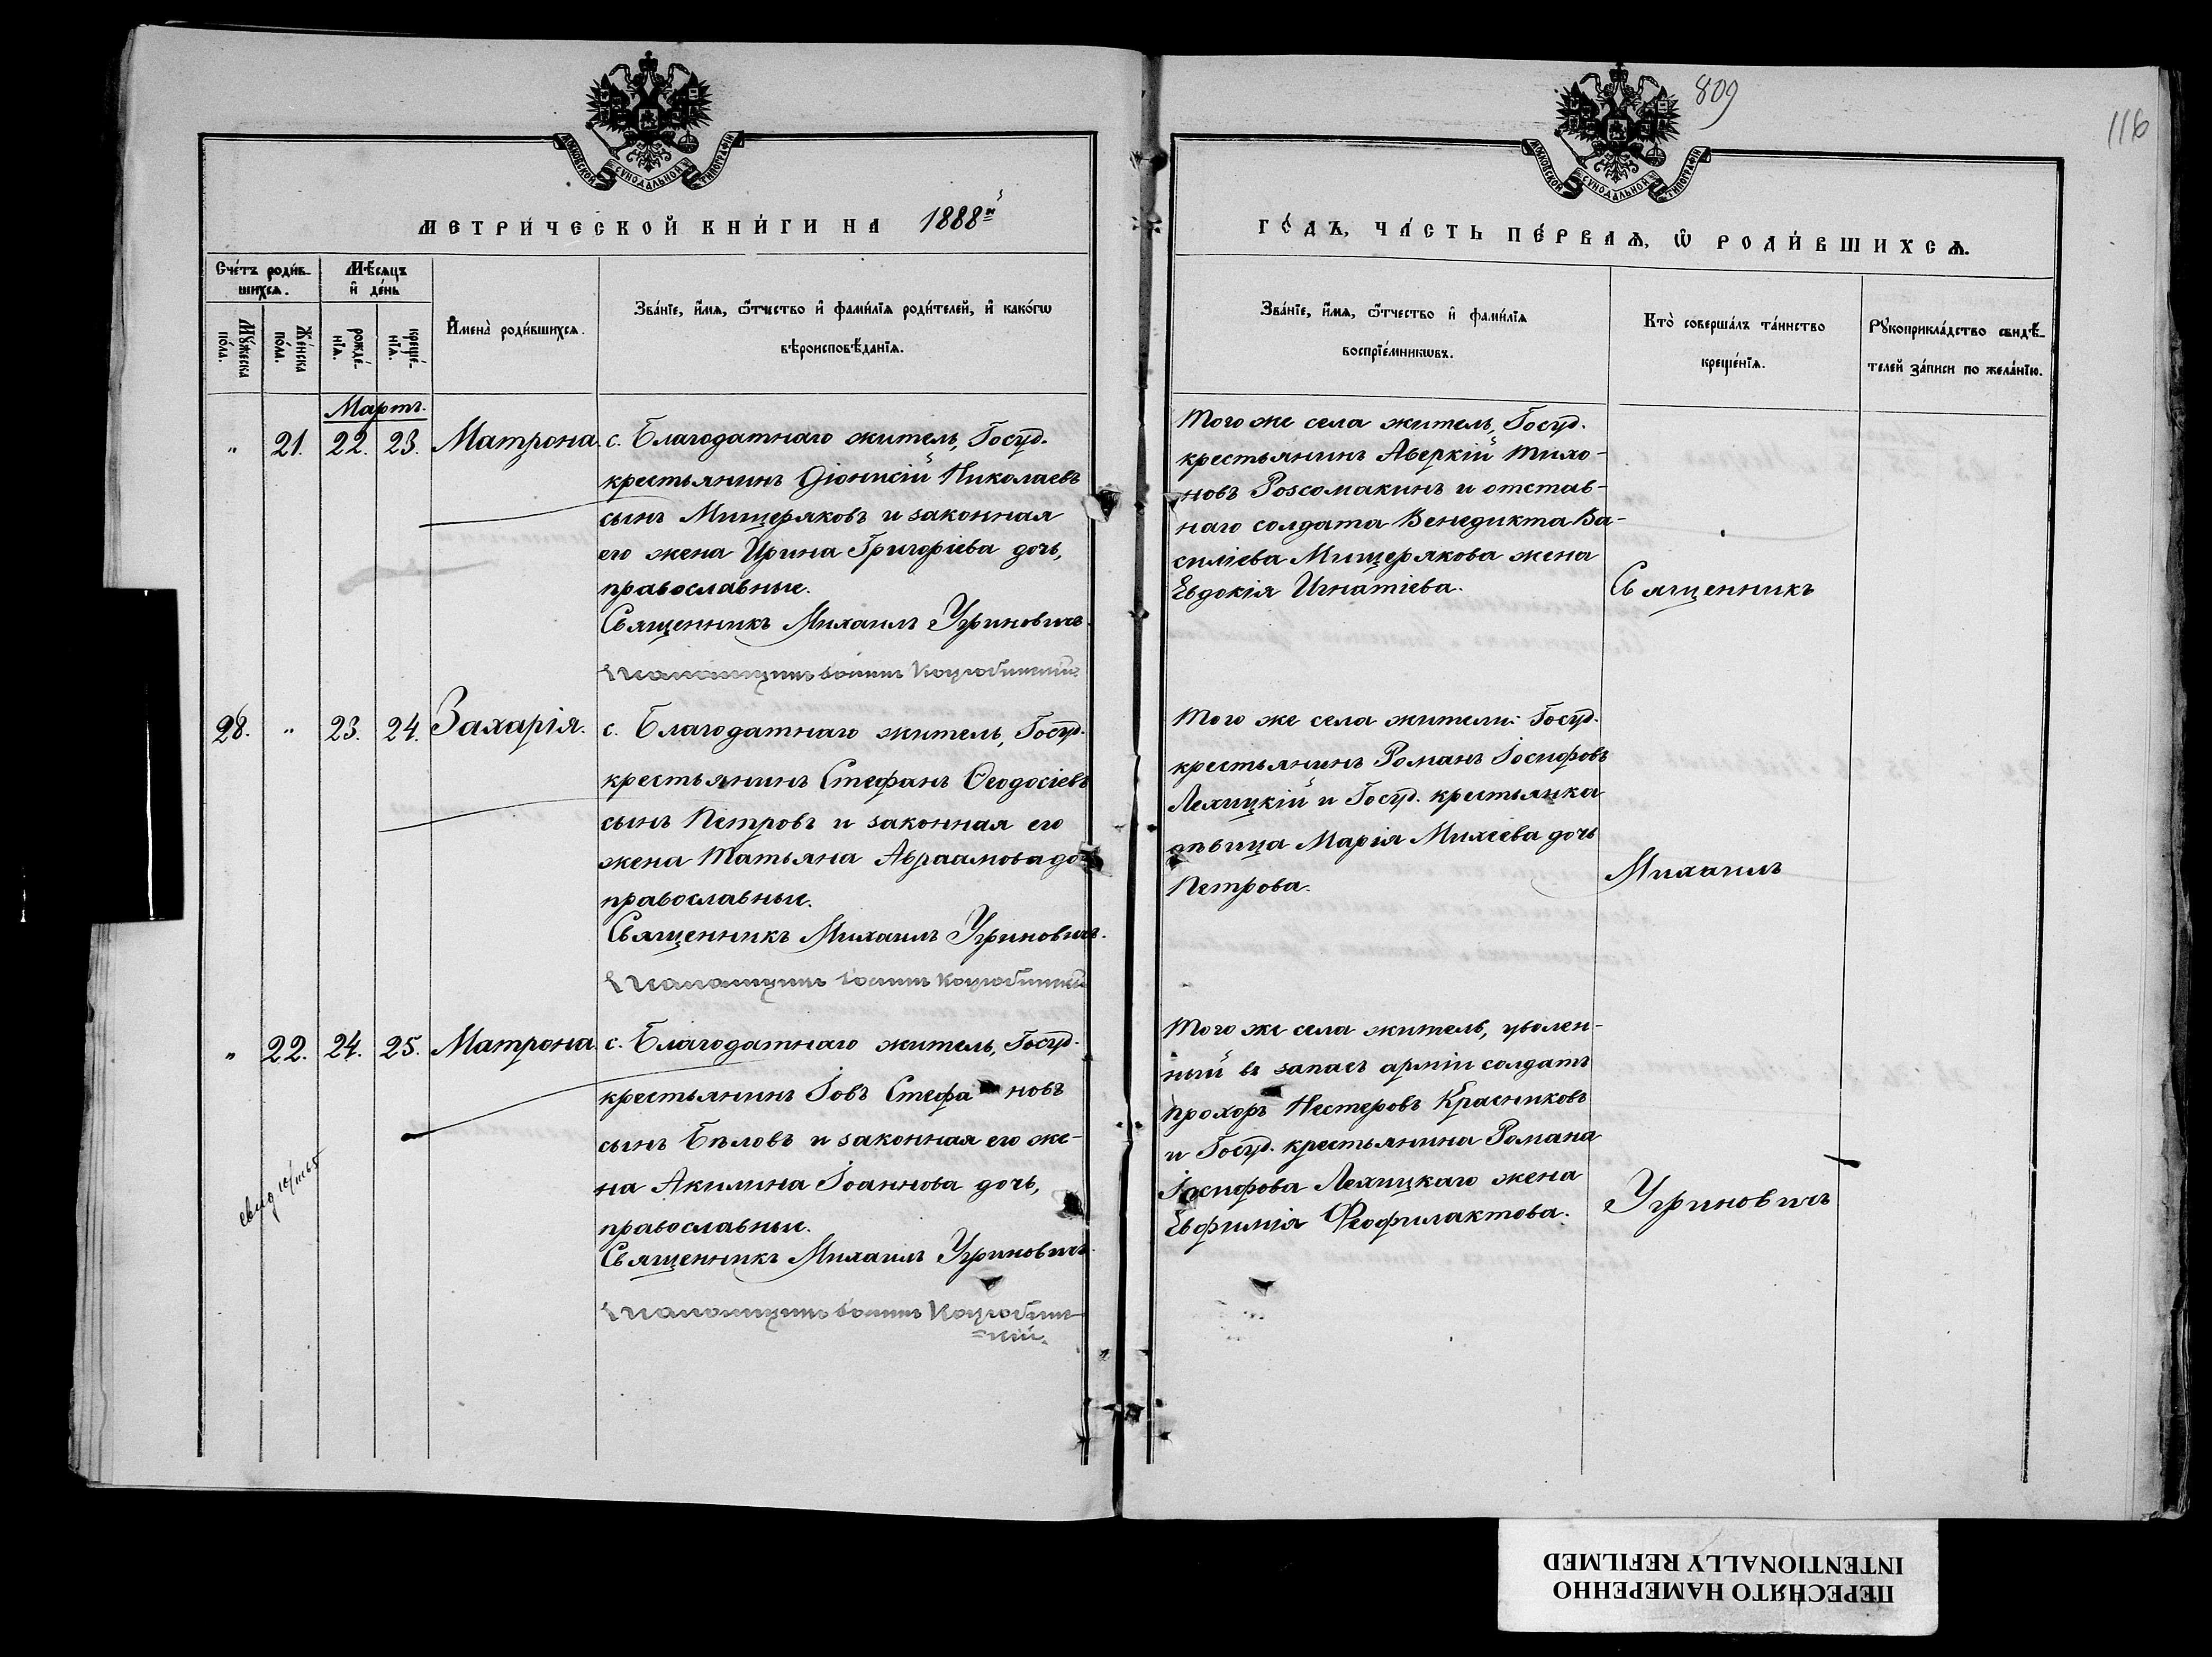 809
116
МОСКОВСКОЙ СѴНОДАЛЬНОЙ ТИПОГРАФІИ
МОСКОВСКОЙ СѴНОДАЛЬНОЙ ТИПОГРАФІИ
МЕТРИ́ЧЕСКОЙ КНИ́ГИ НА 1888й
ГО́ДЪ, ЧА́СТЬ ПЕ́РВАѦ, Ѡ҆ РОДИ́ВШИХСѦ.
Сче́тъ роди́в-
шихсѧ.
Мѣ́сѧцъ
и҆ де́нь
Мꙋ́жеска
по́ла.
Же́нска
по́ла.
рожде́-
нїѧ.
креще́-
нїѧ.
И҆мена̀ роди́вшихсѧ.
Зва́нїе, и҆́мѧ, ѻ҆́тчество и҆ фами́лїѧ роди́телей, и҆ како́гѡ
вѣроисповѣ́данїѧ.
Зва́нїе, и҆́мѧ, ѻ҆́тчество и҆ фами́лїѧ
воспрїе́мникѡвъ.
Кто̀ соверша́лъ та́инство
креще́нїѧ.
Рꙋкоприкла́дство свидѣ́-
телей за́писи по жела́нїю.
Мартъ.
" 21. 22. 23. Матрона. с. Благодатнаго житель, Госуд.
крестьянинъ Діонисій Николаевъ
сынъ Мищеряковъ и законная
его жена Ирина Григоріева дочь,
православные.
Священникъ Михаилъ Угриновичъ.
Псаломщикъ Іоаннъ
Того же села житель, Госуд.
крестьянинъ Аверкій Тихо-
новъ Россомакинъ и отстав-
наго солдата Венедикта Ва-
силіева Мищерякова жена
Евдокія Игнатіева.
Священникъ
28. " 23. 24. Захарія. с. Благодатнаго житель, Госуд.
крестьянинъ Стефанъ Ѳеодосіевъ
сынъ Петровъ и законная его
жена Татьяна Авраамова до
православные.
Священникъ Михаилъ Угриновичъ.
Псаломщикъ Іоаннъ
Того же села жители: Госуд.
крестьянинъ Романъ Іосифовъ
Лехицкій и Госуд. крестьянка
дѣвица Марія Михеева дочь
Петрова.
Михаилъ
" 22. 24. 25. Матрона. с. Благодатнаго житель, Госуд.
крестьянинъ Іовъ Стефановъ
сынъ Бѣловъ и законная его же-
на Акилина Іоаннова дочь,
православные.
Священникъ Михаилъ Угриновичъ.
Псаломщикъ Іоаннъ
Того же села житель, уволен-
ный въ запасъ арміи солдатъ
Прохоръ Нестеровъ Красниковъ
и Госуд. крестьянина Романа
Іосифова Лехицкаго жена
Евфимія Феофилактова.
Угриновичъ
ПЕРЕСНЯТО НАМЕРЕННО
INTENTIONALLY REFILMED